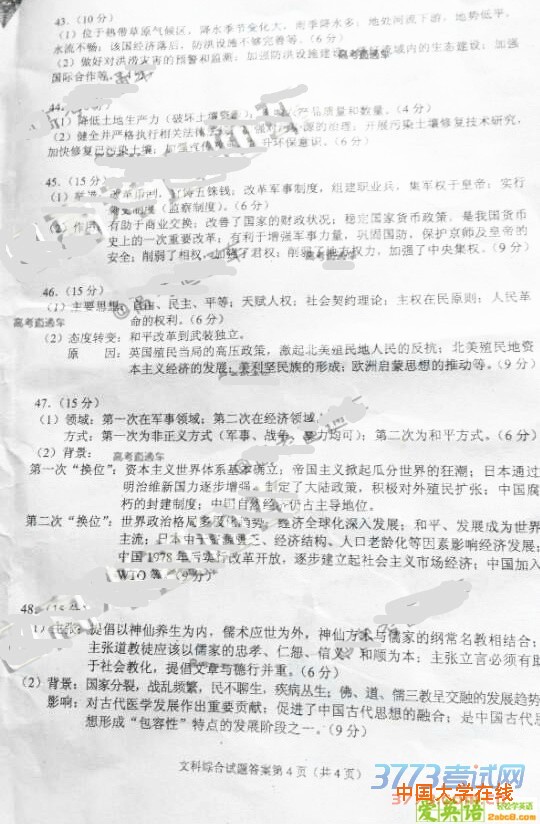 43.(10分)
(1)位于热带草原气候区,降水季节变化大,雨季降水多;地处河流下游,地势低平,
水流不畅;该国经济落后,防洪设施不够完善等。(6分)
(2)做好对洪涝灾害的预警和监测;加强防洪设施建设;流域内的生态建设;加强
国际合作等。(4分)
高考直通车
44.
(1)降低土地生产力(破坏土壤资源);产品质量和数量。(4分)
(2)健全并严格执行相关法律 强对 源的治理;开展污染土壤修复技术研究,
加快修复已污染土壤;加强 环保意识。(6分)
45.(15分)
(1)举措:改革币制,铸五铢钱;改革军事制度,组建职业兵,集军权于皇帝;实行
刺史制度(监察制度)。(6分)
(2)作用:有助于商业交换;改善了国家的财政状况;稳定国家货币政策,是我国货币
史上的一次重要改革;有利于增强军事力量,巩固国防,保护京师及皇帝的
安全;削弱了相权,加强了君权;削弱了地方权力,加强了中央集权。(9分)
46.(15分)
(1)主要思想:自由、民主、平等;天赋人权;社会契约理论;主权在民原则;人民革
命的权利。(6分)
高考直通车
(2)态度转变:和平改革到武装独立。
原 因:英国殖民当局的高压政策,激起北美殖民地人民的反抗;北美殖民地资
本主义经济的发展;美利坚民族的形成;欧洲启蒙思想的推动等。(9分)
47.(15分)
(1)领域:第一次在军事领域;第二次在经济领域。
方式:第一次为非正义方式(军事、战争、暴力均可);第二次为和平方式。(6分)
(2)背景:
高考直通车
第一次“换位”:资本主义世界体系基本确立;帝国主义掀起瓜分世界的狂潮;日本通过
明治维新国力逐步增强。制定了大陆政策,积极对外殖民扩张;中国腐
朽的封建制度;中国自然经济仍占主导地位。
第二次“换位”:世界政治格局多极化趋势,经济全球化深入发展;和平、发展成为世界
主流;日本由于 经济结构、人口老龄化等因素影响经济发展;
中国1978年后实行改革开放,逐步建立起社会主义市场经济;中国加入
WTO等。(9分)
48.
(1)主张:提倡以神仙养生为内,儒术应世为外,神仙方术与儒家的纲常名教相结合;
主张道教徒应该以儒家的忠孝、仁恕、信义、和顺为本;主张立言必须有助
于社会教化,提倡文章与德行并重。(6分)
(2)背景:国家分裂,战乱频繁,民不聊生,疾病丛生;佛、道、儒三教呈交融的发展趋势
影响:对古代医学发展作出重要贡献;促进了中国古代思想的融合;是中国古代思
想形成“包容性”特点的发展阶段之一。(9分)
文科综合试题答案第4页(共4页)
3773考试网
中国大学在线
爱英语 轻松学英语
2abc8.com